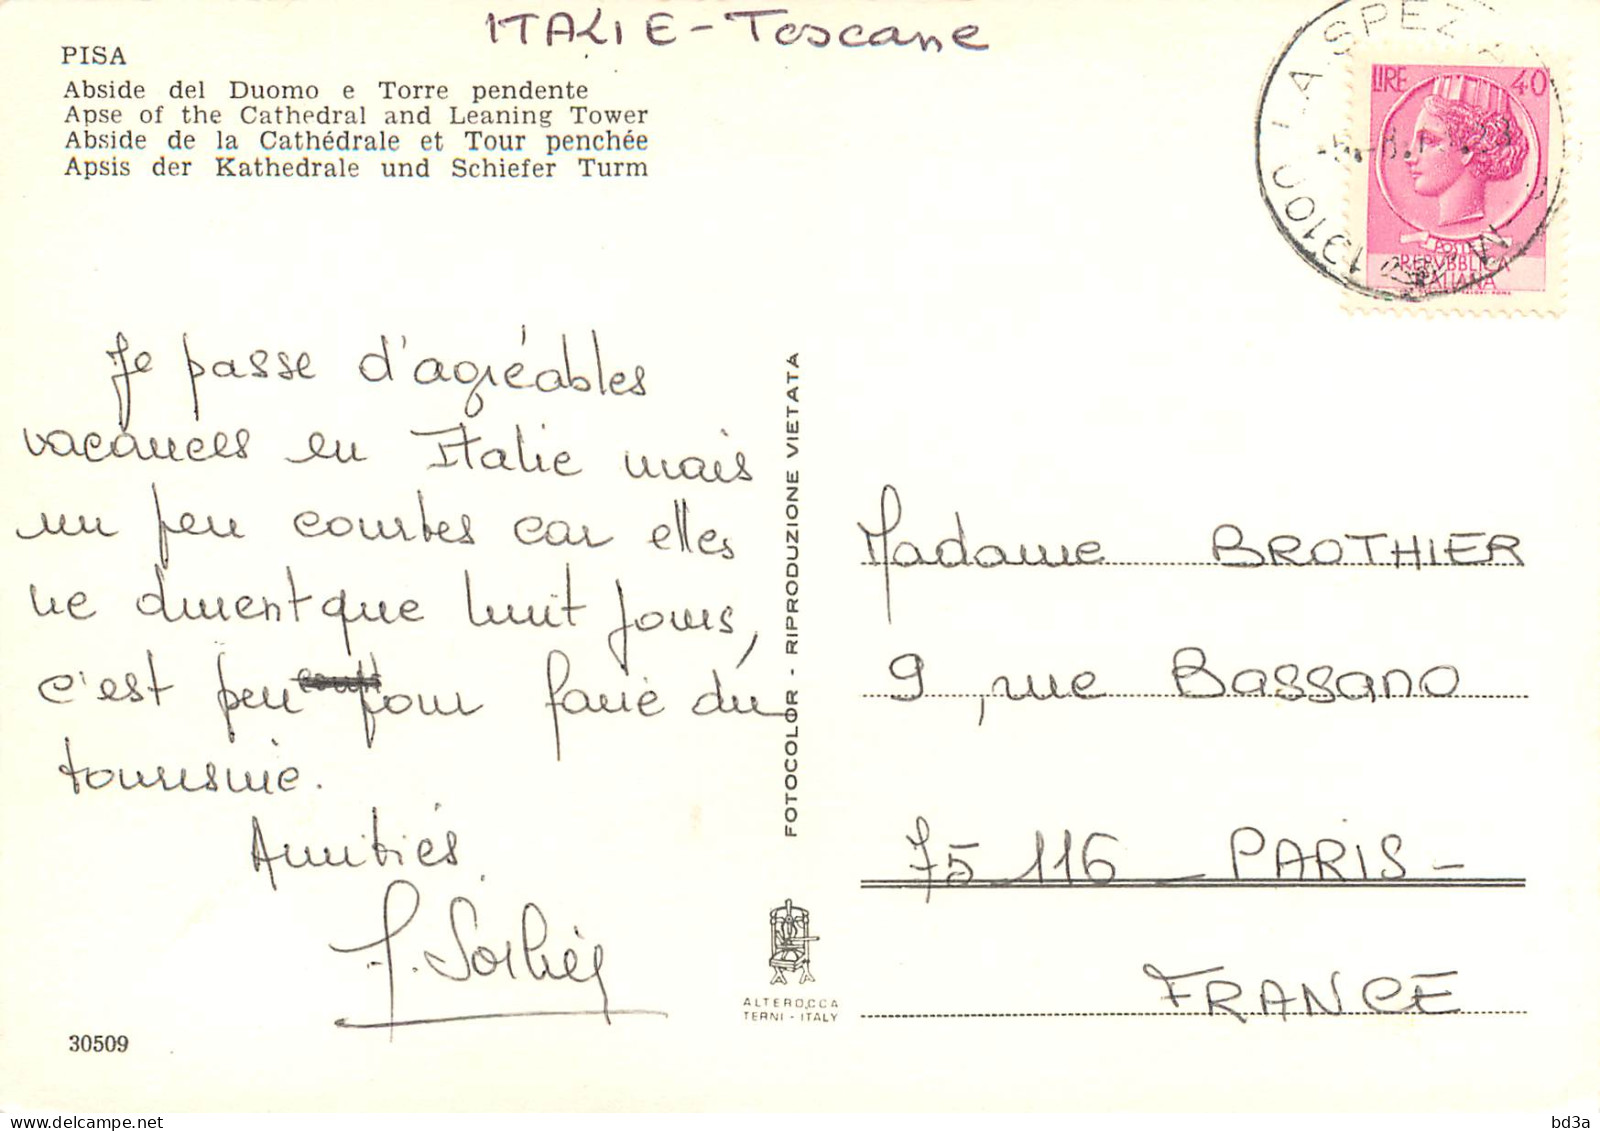 ITALIE - Toscane
PISA
Abside del Duomo e Torre pendente
Apse of the Cathedral and Leaning Tower
Abside de la Cathédrale et Tour penchée
Apsis der Kathedrale und Schiefer Turm
LIRE 40
POSTE
REPVBBLICA
ITALIANA
19100 LA SPEZIA
Je passe d'agréables
vacances en Italie mais
un peu courtes car elles
ne durent que huit jours,
c'est peu pour faire du
tourisme.
Amitiés
FOTOCOLOR - RIPRODUZIONE VIETATA
Madame BROTHIER
9, rue Bassano
75116 - PARIS -
FRANCE
ALTEROCCA
TERNI - ITALY
30509
delcampe.net
bd3a